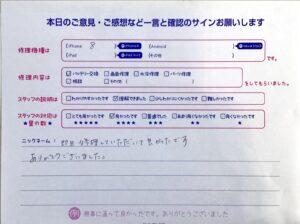 本日のご意見・ご感想など一言と確認のサインお願いします
修理機種は
iPhone 8
Android
iPad
その他
です。
修理内容は
バッテリー交換 画面修理 水没修理 パーツ修理
その他
をしてもらいました。
スタッフの説明は
わかりやすかったです 理解できました 少しわかりにくかったです 難しかったです
スタッフの対応は
★星の数★
とても良かったです 良かったです 普通でした あまり良くなかったです 良くなかったです
★★★★★ ★★★★ ★★★ ★★ ★
ニックネーム：
即日修理していただいて良かったです
ありがとうございました。
無事に直って良かったです。ありがとうございました